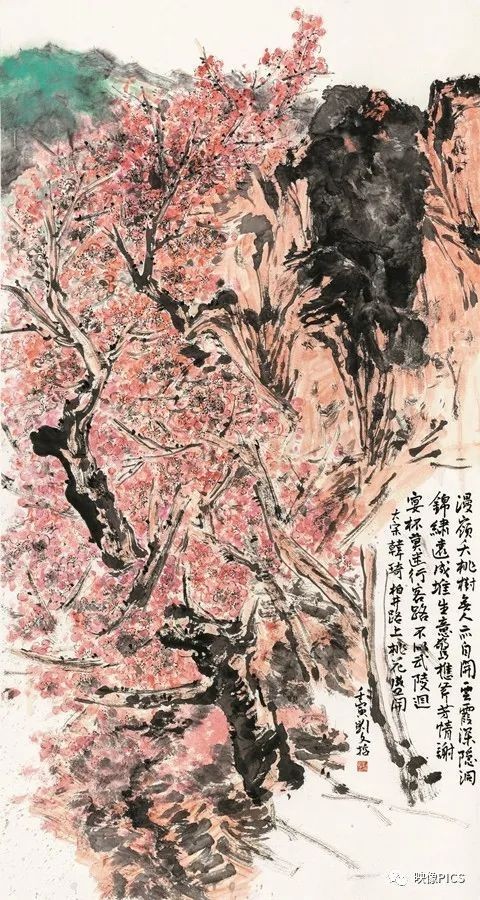 漫嶺夭桃樹無人亦自開雲霞深隱洞
錦繡遠成堆生意驚樵斧芳情謝
宴杯莫迷行客路不似武陵迴
大宋韓琦柏井路上桃花盛開
壬寅劉文
映像PICS